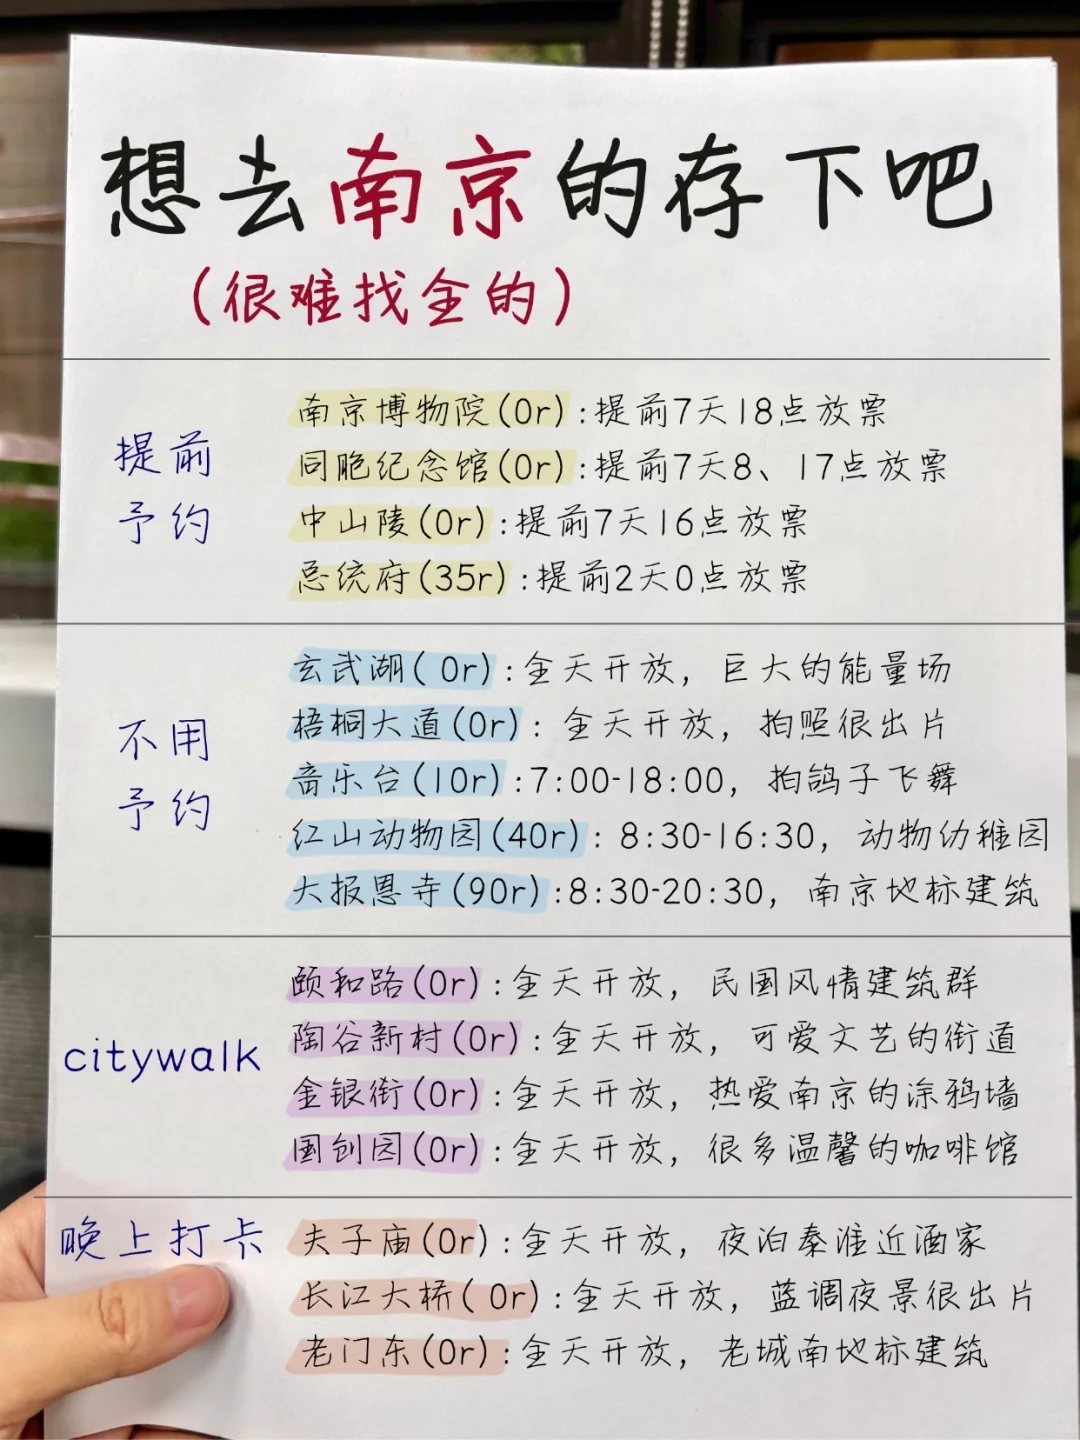 想去南京的存下吧
(很难找全的)
提前
予约
南京博物院(0r):提前7天18点放票
同胞纪念馆(0r):提前7天8、17点放票
中山陵(0r):提前7天16点放票
总统府(35r):提前2天0点放票
不用
予约
玄武湖( 0r):全天开放，巨大的能量场
梧桐大道(0r)：全天开放，拍照很出片
音乐台(10r):7:00-18:00，拍鸽子飞舞
红山动物园(40r)：8:30-16:30，动物幼稚园
大报恩寺(90r):8:30-20:30，南京地标建筑
citywalk
颐和路(0r):全天开放，民国风情建筑群
陶谷新村(0r):全天开放，可爱文艺的街道
金银街(0r):全天开放，热爱南京的涂鸦墙
国创园(0r):全天开放，很多温馨的咖啡馆
晚上打卡
夫子庙(0r):全天开放，夜泊秦淮近酒家
长江大桥( 0r):全天开放，蓝调夜景很出片
老门东(0r):全天开放，老城南地标建筑